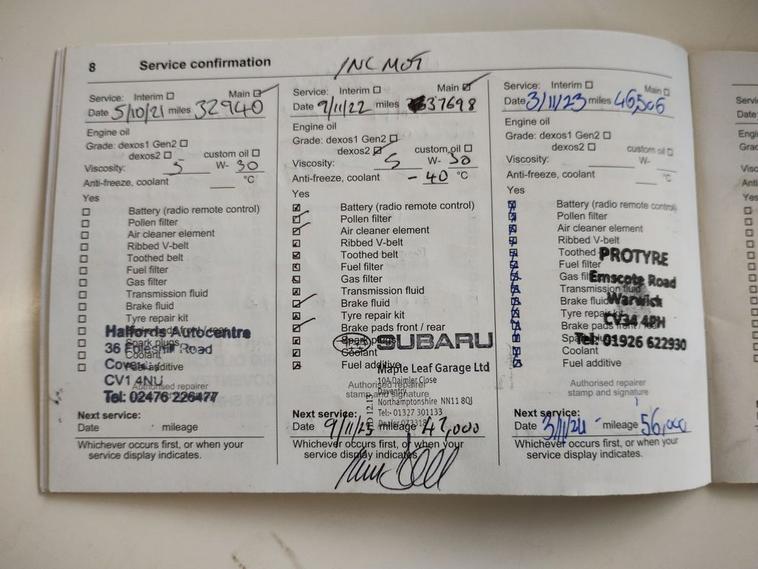 8 Service confirmation INC MOT
Service: Interim Main
Date 5/10/21 miles 32940
Engine oil
Grade: dexos1 Gen2
dexos2 custom oil
Viscosity: 5 W- 30
Anti-freeze, coolant °C
Yes
Battery (radio remote control)
Pollen filter
Air cleaner element
Ribbed V-belt
Toothed belt
Fuel filter
Gas filter
Transmission fluid
Brake fluid
Tyre repair kit
Brake pads front / rear
Spark plugs
Coolant
Fuel additive
Halfords Autocentre
36 Foleshill Road
CV1 4NU
Tel: 02476 226477
Authorised repairer
stamp and signature
Next service:
Date mileage
Whichever occurs first, or when your
service display indicates.
Service: Interim Main
Date 9/11/22 miles 37698
Engine oil
Grade: dexos1 Gen2
dexos2 custom oil
Viscosity: 5 W- 30
Anti-freeze, coolant -40 °C
Yes
Battery (radio remote control)
Pollen filter
Air cleaner element
Ribbed V-belt
Toothed belt
Fuel filter
Gas filter
Transmission fluid
Brake fluid
Tyre repair kit
Brake pads front / rear
Spark plugs
Coolant
Fuel additive
SUBARU
Maple Leaf Garage Ltd
10A Daimler Close
Daventry
Northamptonshire NN11 8QJ
Tel:- 01327 301133
Authorised repairer
stamp and signature
Next service:
Date 9/11/23 mileage 47,000
Whichever occurs first, or when your
service display indicates.
Service: Interim Main
Date 3/11/23 miles 46,506
Engine oil
Grade: dexos1 Gen2
dexos2 custom oil
Viscosity: W-
Anti-freeze, coolant °C
Yes
Battery (radio remote control)
Pollen filter
Air cleaner element
Ribbed V-belt
Toothed
Fuel filter
Gas filter
Transmission fluid
Brake fluid
Tyre repair kit
Brake pads front / rear
Spark plugs
Coolant
Fuel additive
PROTYRE
Emscote Road
Warwick
CV34 4PH
Tel: 01926 622930
Authorised repairer
stamp and signature
Next service:
Date 3/11/24 mileage 56,000
Whichever occurs first, or when your
service display indicates.